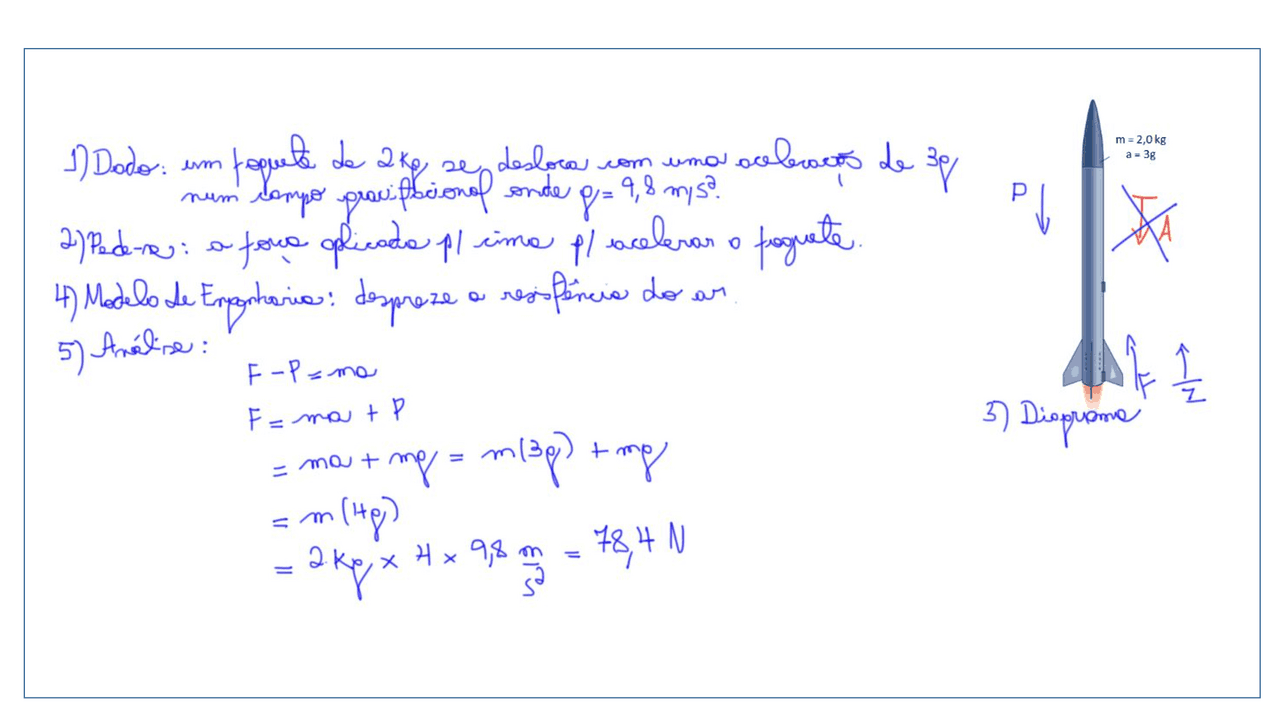 1) Dado: um foguete de 2 kg se desloca com uma aceleração de 3g
num campo gravitacional onde g = 9,8 m/s².
2) Pede-se: a força aplicada p/ cima p/ acelerar o foguete.
4) Modelo de Engenharia: despreze a resistência do ar.
5) Análise:
F - P = ma
F = ma + P
= ma + mg = m(3g) + mg
= m(4g)
= 2 kg × 4 × 9,8 m/s² = 78,4 N
m = 2,0 kg
a = 3g
P
A
F
Z
3) Diagrama